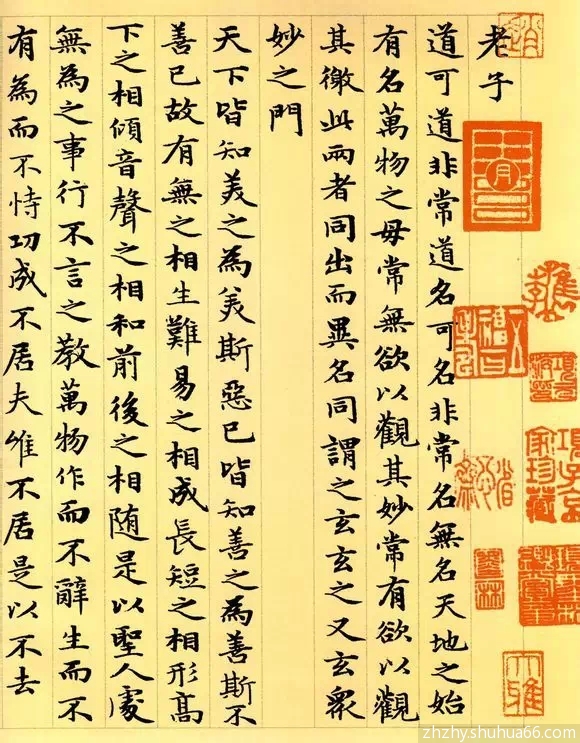 老子
道可道非常道名可名非常名無名天地之始
有名萬物之母常無欲以觀其妙常有欲以觀
其徼此兩者同出而異名同謂之玄玄之又玄衆
妙之門
天下皆知美之為美斯惡已皆知善之為善斯不
善已故有無之相生難易之相成長短之相形高
下之相傾音聲之相和前後之相随是以聖人處
無為之事行不言之教萬物作而不辭生而不
有為而不恃功成不居夫唯不居是以不去
項子京家珍藏
墨林
大雅
zhzhy.shuhua66.com